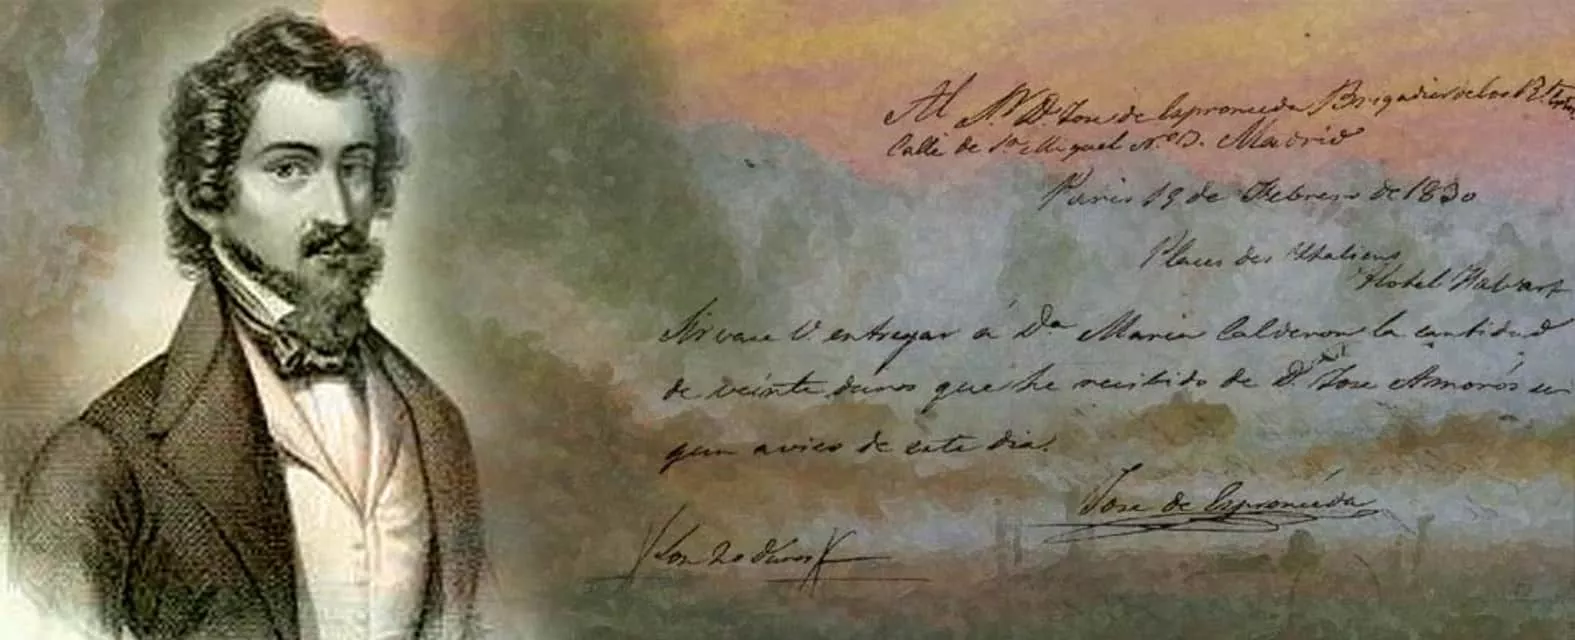 Al Sr. D. Jose de Espronceda Brigadier de los Rs.
Calle de Sn Miguel No. Madrid
Paris 19 de Febrero de 1830
Places des Italiens
Hotel Favart
Sirvase V. entregar á Da Maria Calderon la cantidad
de veinte duros que he recibido de D. Jose Amorós se
gun aviso de este dia.
Jose de Espronceda
Son 20 duros